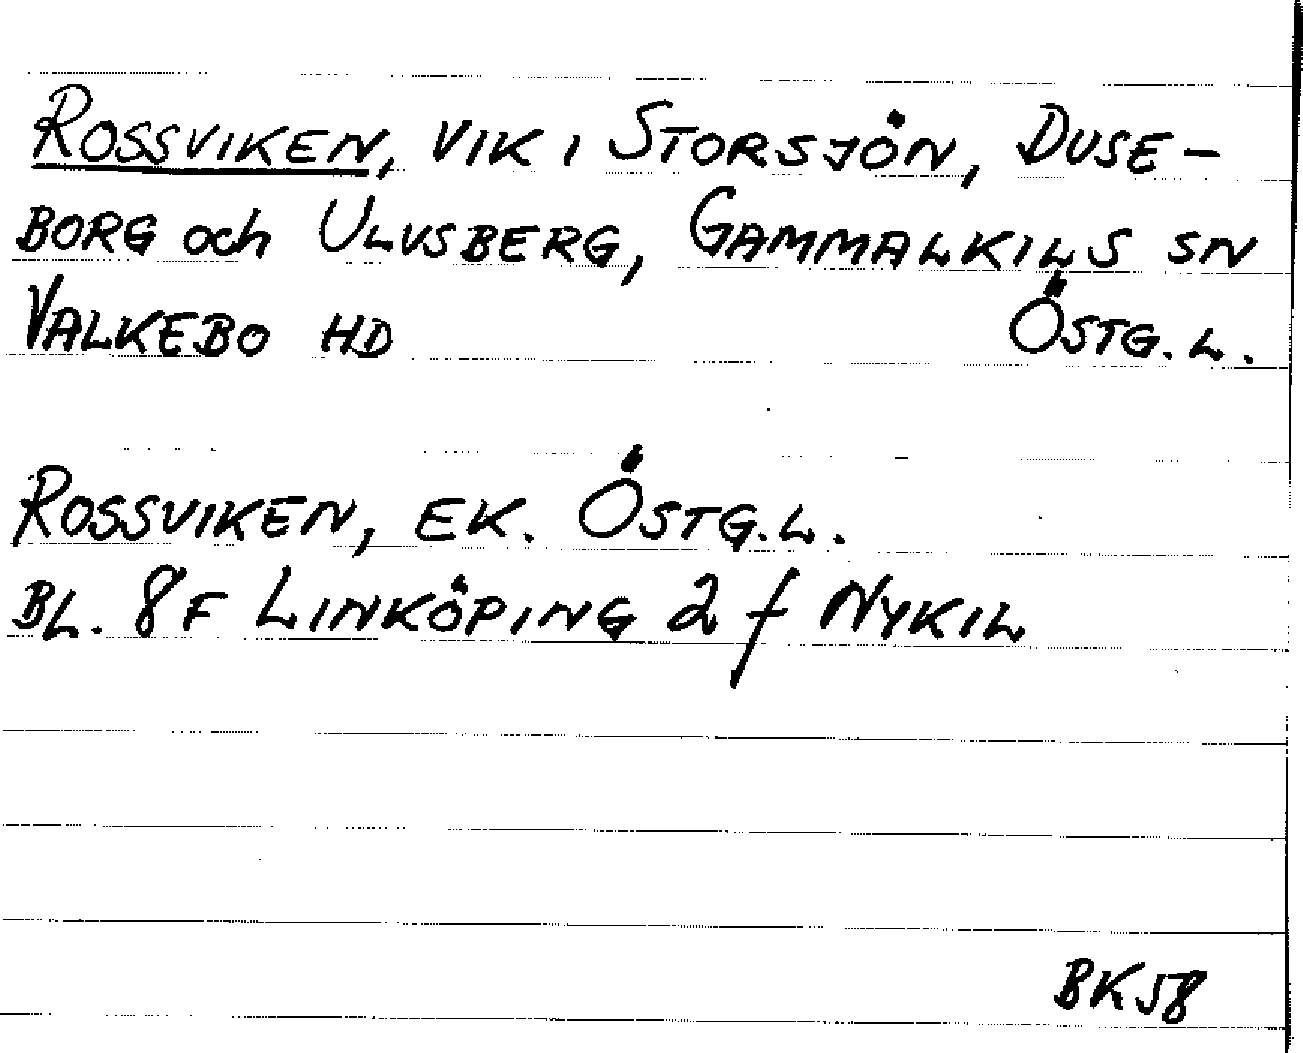 ROSSVIKEN, VIK I STORSJÖN, DUSE-
BORG och ULVSBERG, GAMMALKILS SN
VALKEBO HD ÖSTG.L.
ROSSVIKEN, EK. ÖSTG.L.
BL. 8F LINKÖPING 2 f NYKIL
BK58